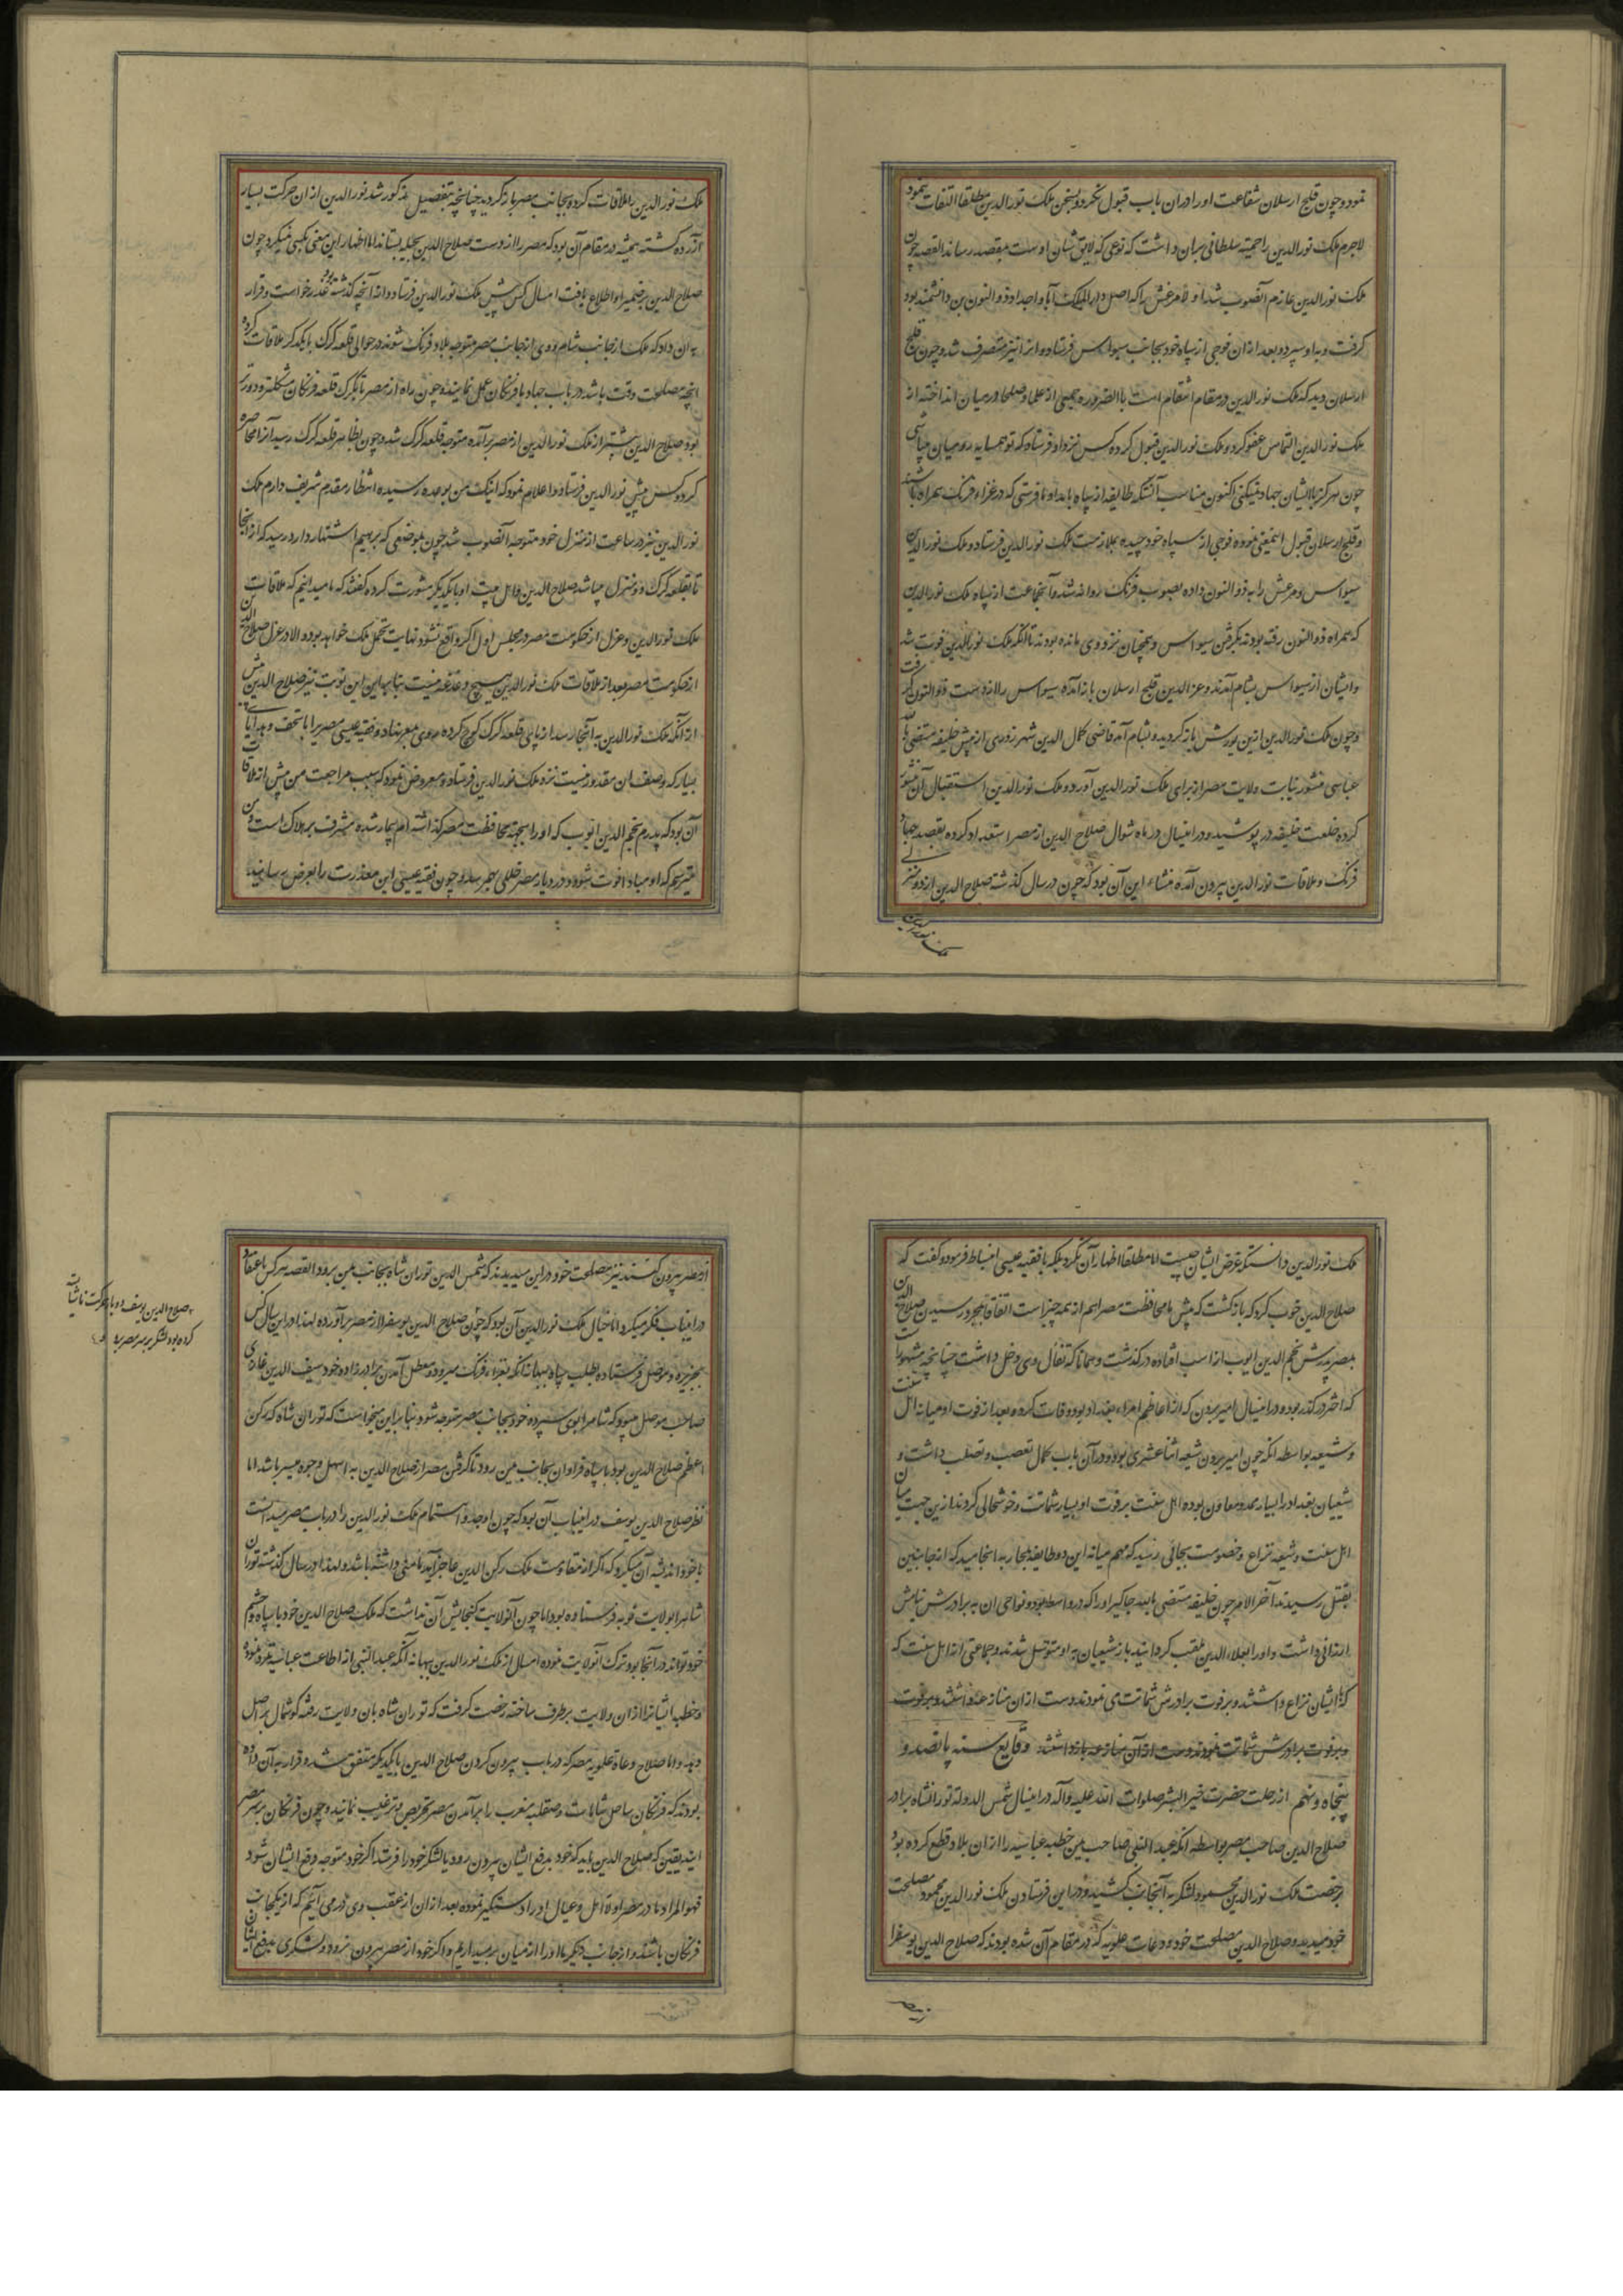 نمود و چون قلیج ارسلان شفاعت او را دران باب قبول نکرد و بسخن ملک نور الدین مطلقا التفات ننمود
لاجرم ملک نور الدین را حمیت سلطانی بران داشت که نوعی که لایق شان اوست بمقصد رساند القصه چون
ملک نور الدین عازم آنصوب شد اول مرعش را که اصل دار الملک آبا و اجداد ذو النون بن دانشمند بود
گرفت و به او سپرد و بعد ازان فوجی از سپاه خود بجانب سیواس فرستاد و انرا نیز متصرف شد و چون قلیج
ارسلان دید که ملک نور الدین در مقام انتقام است بالضروره جمعی از علما و صلحا در میان انداخته از
ملک نور الدین التماس عفو کرد و ملک نور الدین قبول کرده کس نزد او فرستاد که تو همسایه رومیان می باشی
چون هرگز با ایشان جهاد نمیکنی اکنون مناسب آنستکه طایفه از سپاه باید او ما فرستی که در غزاء فرنگ همراه ما باشند
و قلیج ارسلان قبول اینمعنی نموده فوجی از سپاه خود چیده بملازمت ملک نور الدین فرستاد و ملک نور الدین
سیواس و مرعش را به ذو النون داده بصوب فرنگ روانه شد و آنجماعت از سپاه ملک نور الدین
که همراه ذو النون رفته بودند بگرفتن سیواس و همچنان نزد وی مانده بودند تا آنکه ملک نور الدین فوت شد
و ایشان از سیواس بشام آمدند و عز الدین قلیج ارسلان باز آمده سیواس را از دست ذو النون گرفت
و چون ملک نور الدین ازین یورش باز گردیده بشام آمد قاضی کمال الدین شهرزوری از پیش خلیفه مستضی بالله
عباسی منشور نیابت ولایت مصر از برای ملک نور الدین آورد و ملک نور الدین استقبال آن منشور
کرده خلعت خلیفه در پوشید و در اینسال در ماه شوال صلاح الدین از مصر استعداد کرده بقصد جهاد
فرنگ و ملاقات نور الدین بیرون آمده منشاء این آن بود که چون در سال گذشته صلاح الدین از دو منزلی
ملک نور الدین
ملک نور الدین را ملاقات کرده بجانب مصر باز گردید چنانچه بتفصیل مذکور شد نور الدین از ان حرکت بسیار
آزرده گشته همیشه در مقام آن بود که مصر را از دست صلاح الدین بحیله بستاند اما اظهار این معنی بکسی نمیکرد و چون
صلاح الدین بر ضمیر او اطلاع یافت امسال کس پیش ملک نور الدین فرستاد و از آنچه گذشته بود عذر خواست و قرار
به آن داد که ملک از جانب شام و وی از جانب مصر متوجه بلاد فرنگ شوند و در حوالی قلعه کرک بایکدیگر ملاقات کرده
انچه مصلحت وقت باشد در باب جهاد با فرنگان عمل نمایند و چون راه از مصر تا بکرک قلعه فرنگان مشکلتر و دورتر
بود صلاح الدین پیشتر از ملک نور الدین از مصر برآمده متوجه قلعه کرک شد و چون بظاهر قلعه کرک رسید آنرا محاصره
کرد و کس پیش نور الدین فرستاد و اعلام نمود که اینک من بوعده رسیده انتظار مقدم شریف دارم ملک
نور الدین نیز در ساعت از منزل خود متوجه آنصوب شد چون بموضعی که برقیم اشتهار دارد رسید که از انجا
تا بقلعه کرک دو منزل میباشد صلاح الدین و اهل بیت او بایکدیگر مشورت کرده گفتند که ما میدانیم که ملاقات
ملک نور الدین و عزل از حکومت مصر در مجلس اول اگر واقع نشود نهایت تحمل ملک خواهد بود و الا در عزل صلاح الدین
از حکومت مصر بعد از ملاقات ملک نور الدین هیچ دغدغه نیست بنابراین این نوبت نیز صلاح الدین پیش
از آنکه ملک نور الدین به آنجا رسد از پای قلعه کرک کوچ کرده روی بمصر نهاد و فقیه عیسی مصری را با تحف و هدایای
بسیار که وصف ان مقدور نیست نزد ملک نور الدین فرستاده معروض نمود که سبب مراجعت من پیش از ملاقات
آن بود که پدرم نجم الدین ایوب که او را بجهة محافظت مصر گذاشته ام بیمار شده مشرف بر هلاک است و من
میترسم که او مبادا فوت شود و در دیار مصر خللی بهم رسد و چون فقیه عیسی این معذرت را بعرض رسانید
ملک نور الدین دانست که غرض ایشان چیست اما مطلقا اظهار آن نکرد بلکه با فقیه عیسی انبساط فرمود و گفت که
صلاح الدین خوب کرد که باز گشت که پیش ما محافظت مصر اهم از همه چیز است اتفاقا بمجرد رسیدن صلاح الدین
بمصر پدرش نجم الدین ایوب از اسب افتاده در گذشت و همانا که تفال وی دخل داشت چنانچه مشهور است
که اختر در گذر بود و در اینسال امیر بردن که از اعاظم امراء بغداد بود وفات کرده بعد از فوت او میانه اهل سنت
و شیعه بواسطه انکه چون امیر بردن شیعه اثنا عشری بود و در آن باب کمال تعصب و تصلب داشت و
شیعیان بغداد را بسیار ممد و معاون بوده اهل سنت بر فوت او بسیار شماتت و خوشحالی کردند ازین جهت میان
اهل سنت و شیعه نزاع و خصومت بجائی رسید که مهم میانه این دو طایفه بمحاربه انجامید که از جانبین
بقتل رسیدند آخر الامر چون خلیفه مستضی بالله جاگیر او را که در واسط بود و نواحی ان به برادرش نیامش
ارزانی داشت و او را بعلاء الدین ملقب گردانید باز شیعیان به او متوسل شدند و جماعتی از اهل سنت که
که با ایشان نزاع داشتند و بر فوت برادرش شماتت می نمودند دست از ان منازعه داشتند و بر فوت
و بر فوت برادرش شماتت نمودند دست از آن منازعه بازداشتند وقایع سنه پانصد و
پنجاه و نهم از رحلت حضرت خیر البشر صلوات الله علیه و آله در اینسال شمس الدوله تورانشاه برادر
صلاح الدین صاحب مصر بواسطه انکه عبد النبی صاحب یمن خطبه عباسیه را از ان بلاد قطع کرده بود
برخصت ملک نور الدین محمود لشکر به آنجانب کشید و در این فرستادن ملک نور الدین محمود مصلحت
خود میدید و صلاح الدین مصلحت خود و دعات علویه که در مقام آن شده بودند که صلاح الدین یوسف را
از مصر
از مصر بیرون کنند نیز مصلحت خود در این میدیدند که شمس الدین توران شاه بجانب یمن برود القصه هر کس باعتقاد
در اینباب فکر میکرد اما خیال ملک نور الدین آن بود که چون صلاح الدین یوسف را از مصر برآورده لهذا در این سال کس
بجزیره و موصل فرستاده بطلب سپاه ببهانه انکه بغزاء فرنگ میرود و معطل آمدن برادرزاده خود سیف الدین غازی
صاحب موصل میبود که شام را بوی سپرده خود بجانب مصر متوجه شود بنا براین میخواست که توران شاه که رکن
اعظم صلاح الدین بود با سپاه فراوان بجانب یمن رود تا گرفتن مصر از صلاح الدین به اسهل وجوه میسر باشد اما
نظر صلاح الدین یوسف در اینباب آن بود که چون او جد و اهتمام ملک نور الدین را در باب مصر میدانست
با خود اندیشه آن میکرد که اگر از مقاومت ملک رکن الدین عاجز آید مامنی داشته باشد و لهذا در سال گذشته توران
شاه را بولایت نوبه فرستاده بود اما چون آنولایت گنجایش آن نداشت که ملک صلاح الدین خود با سپاه و حشم
خود تواند در آنجا بود ترک آنولایت نموده امسال از ملک نور الدین ببهانه آنکه عبد النبی از اطاعت عباسیه تمرد نموده
و خطبه ایشانرا از ان ولایت برطرف ساخته رخصت گرفت که توران شاه بان ولایت رفته گوشمال بر اصل
دهد و اما صلاح دعاة علویه مصر که در باب بیرون کردن صلاح الدین بایکدیگر متفق شده قرار به آن داده
بودند که فرنگان ساحل شامات و صقلیه مغرب را بر آمدن مصر تحریص و ترغیب نمایند و چون فرنگان بر سر مصر
ایند یقین که صلاح الدین باید که خود بدفع ایشان بیرون رود یا لشکر خود را فرستد اگر خود متوجه دفع ایشان شود
فهو المراد ما در مصر او را و اهل و عیال او را دستگیر نموده بعد از ان از عقب وی در می آئیم که از یکجانب
فرنگان باشند و از جانب دیگر ما او را از میان برمیداریم و اگر خود از مصر بیرون نرود و لشکری بدفع ایشان
صلاح الدین یوسف دو بار حرکت ناشایست
کرده بود لشکر بر سر مصر برد